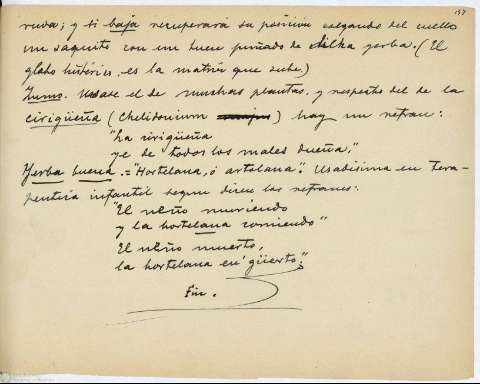 157
ruda; y si baja recuperará su posición colgando del cuello
un saquito con un buen puñado de dilha yerba. (El
globo histérico, es la matriz que sube.)
Zumo. Usase el de muchas plantas, y respecto del de la
cirigüeña (Chelidonium) hay un refran:
"La cirigüeña
ye de todos los males dueña."
Yerba buena. = "Hortelana, ó artelana". Usadisima en tera-
peutica infantil segun dicen los refranes:
"El nEño muriendo
y la hortelana comiendo"
El nEño muerto,
la hortelana en'güerto".
Fin.